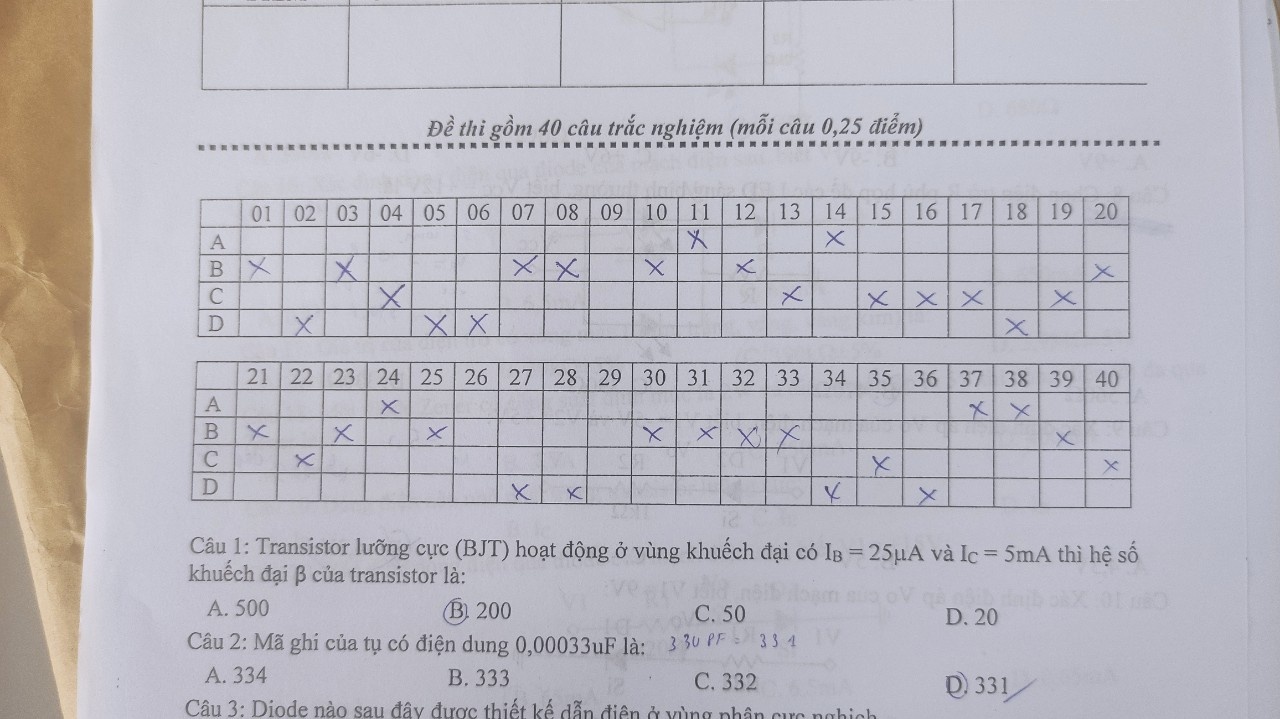 Đề thi gồm 40 câu trắc nghiệm (mỗi câu 0,25 điểm)
01 02 03 04 05 06 07 08 09 10 11 12 13 14 15 16 17 18 19 20
A X X
B X X X X X X X
C X X X X X X
D X X X X
21 22 23 24 25 26 27 28 29 30 31 32 33 34 35 36 37 38 39 40
A X X X
B X X X X X X X X
C X X X
D X X X X
Câu 1: Transistor lưỡng cực (BJT) hoạt động ở vùng khuếch đại có IB = 25µA và IC = 5mA thì hệ số
khuếch đại β của transistor là:
A. 500 B. 200 C. 50 D. 20
Câu 2: Mã ghi của tụ có điện dung 0,00033uF là: 330 PF = 331
A. 334 B. 333 C. 332 D. 331
Câu 3: Diode nào sau đây được thiết kế dẫn điện ở vùng phân cực nghịch